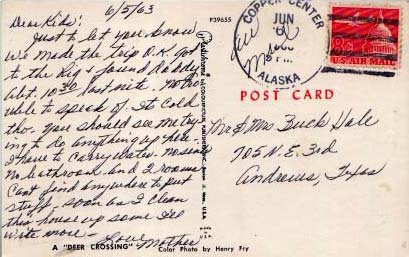 6/5/63
Dear Kids:
Just to let you know
we made the trip O.K. got
to the Rig & found Daddy
abt. 10:30 last nite. No tro
uble to speak of. Its cold
tho. You should see me try
ing to do anything up here.
I have to carry water. No sink
No bathroom and 2 rooms
Cant find anywhere to put
stuff, soon as I clean
this house up some Ill
write more -
Love Mother
A "DEER CROSSING"
Color Photo by Henry Fry
P39655
MADE IN U.S.A.
COPPER CENTER
JUN
6
PM
ALASKA
8¢
U.S. AIR MAIL
POST CARD
Mr & Mrs Buck Hale
705 N.E. 3rd
Andrews, Texas